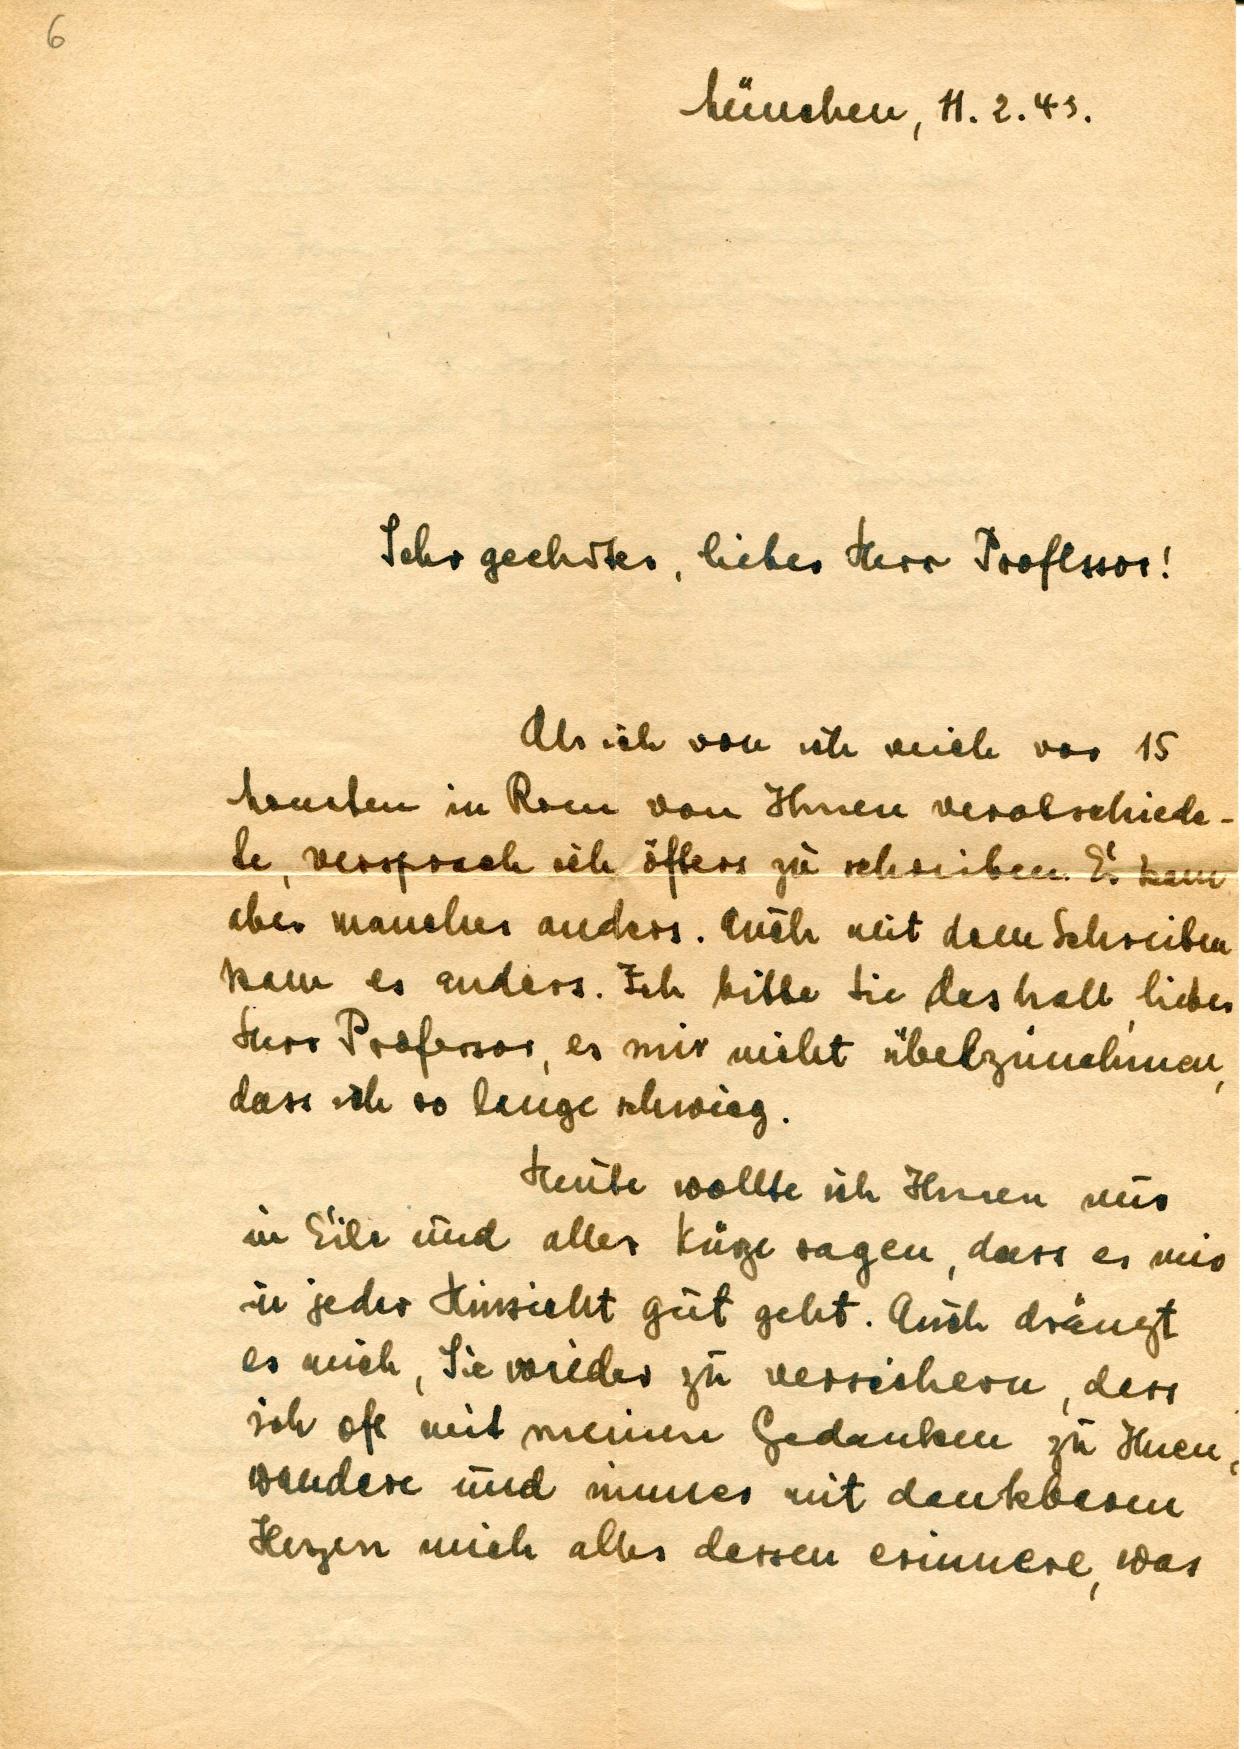 6
München, 11. 2. 43.
Sehr geehrter, lieber Herr Professor!
Als ich von ich mich vor 15
Monaten in Rom von Ihnen verabschiede-
te, versprach ich öfters zu schreiben. Es kam
aber manches anders. Auch mit dem Schreiben
kam es anders. Ich bitte Sie deshalb, lieber
Herr Professor, es mir nicht übelzunehmen,
dass ich so lange schwieg.
Heute wollte ich Ihnen nur
in Eile und aller Küze sagen, dass es mir
in jeder Hinsicht gut geht. Auch drängt
es mich, Sie wieder zu versichern, dass
ich oft mit meinen Gedanken zu Ihnen,
wandere und immer mit dankbarem
Herzen mich alles dessen erinnere, was